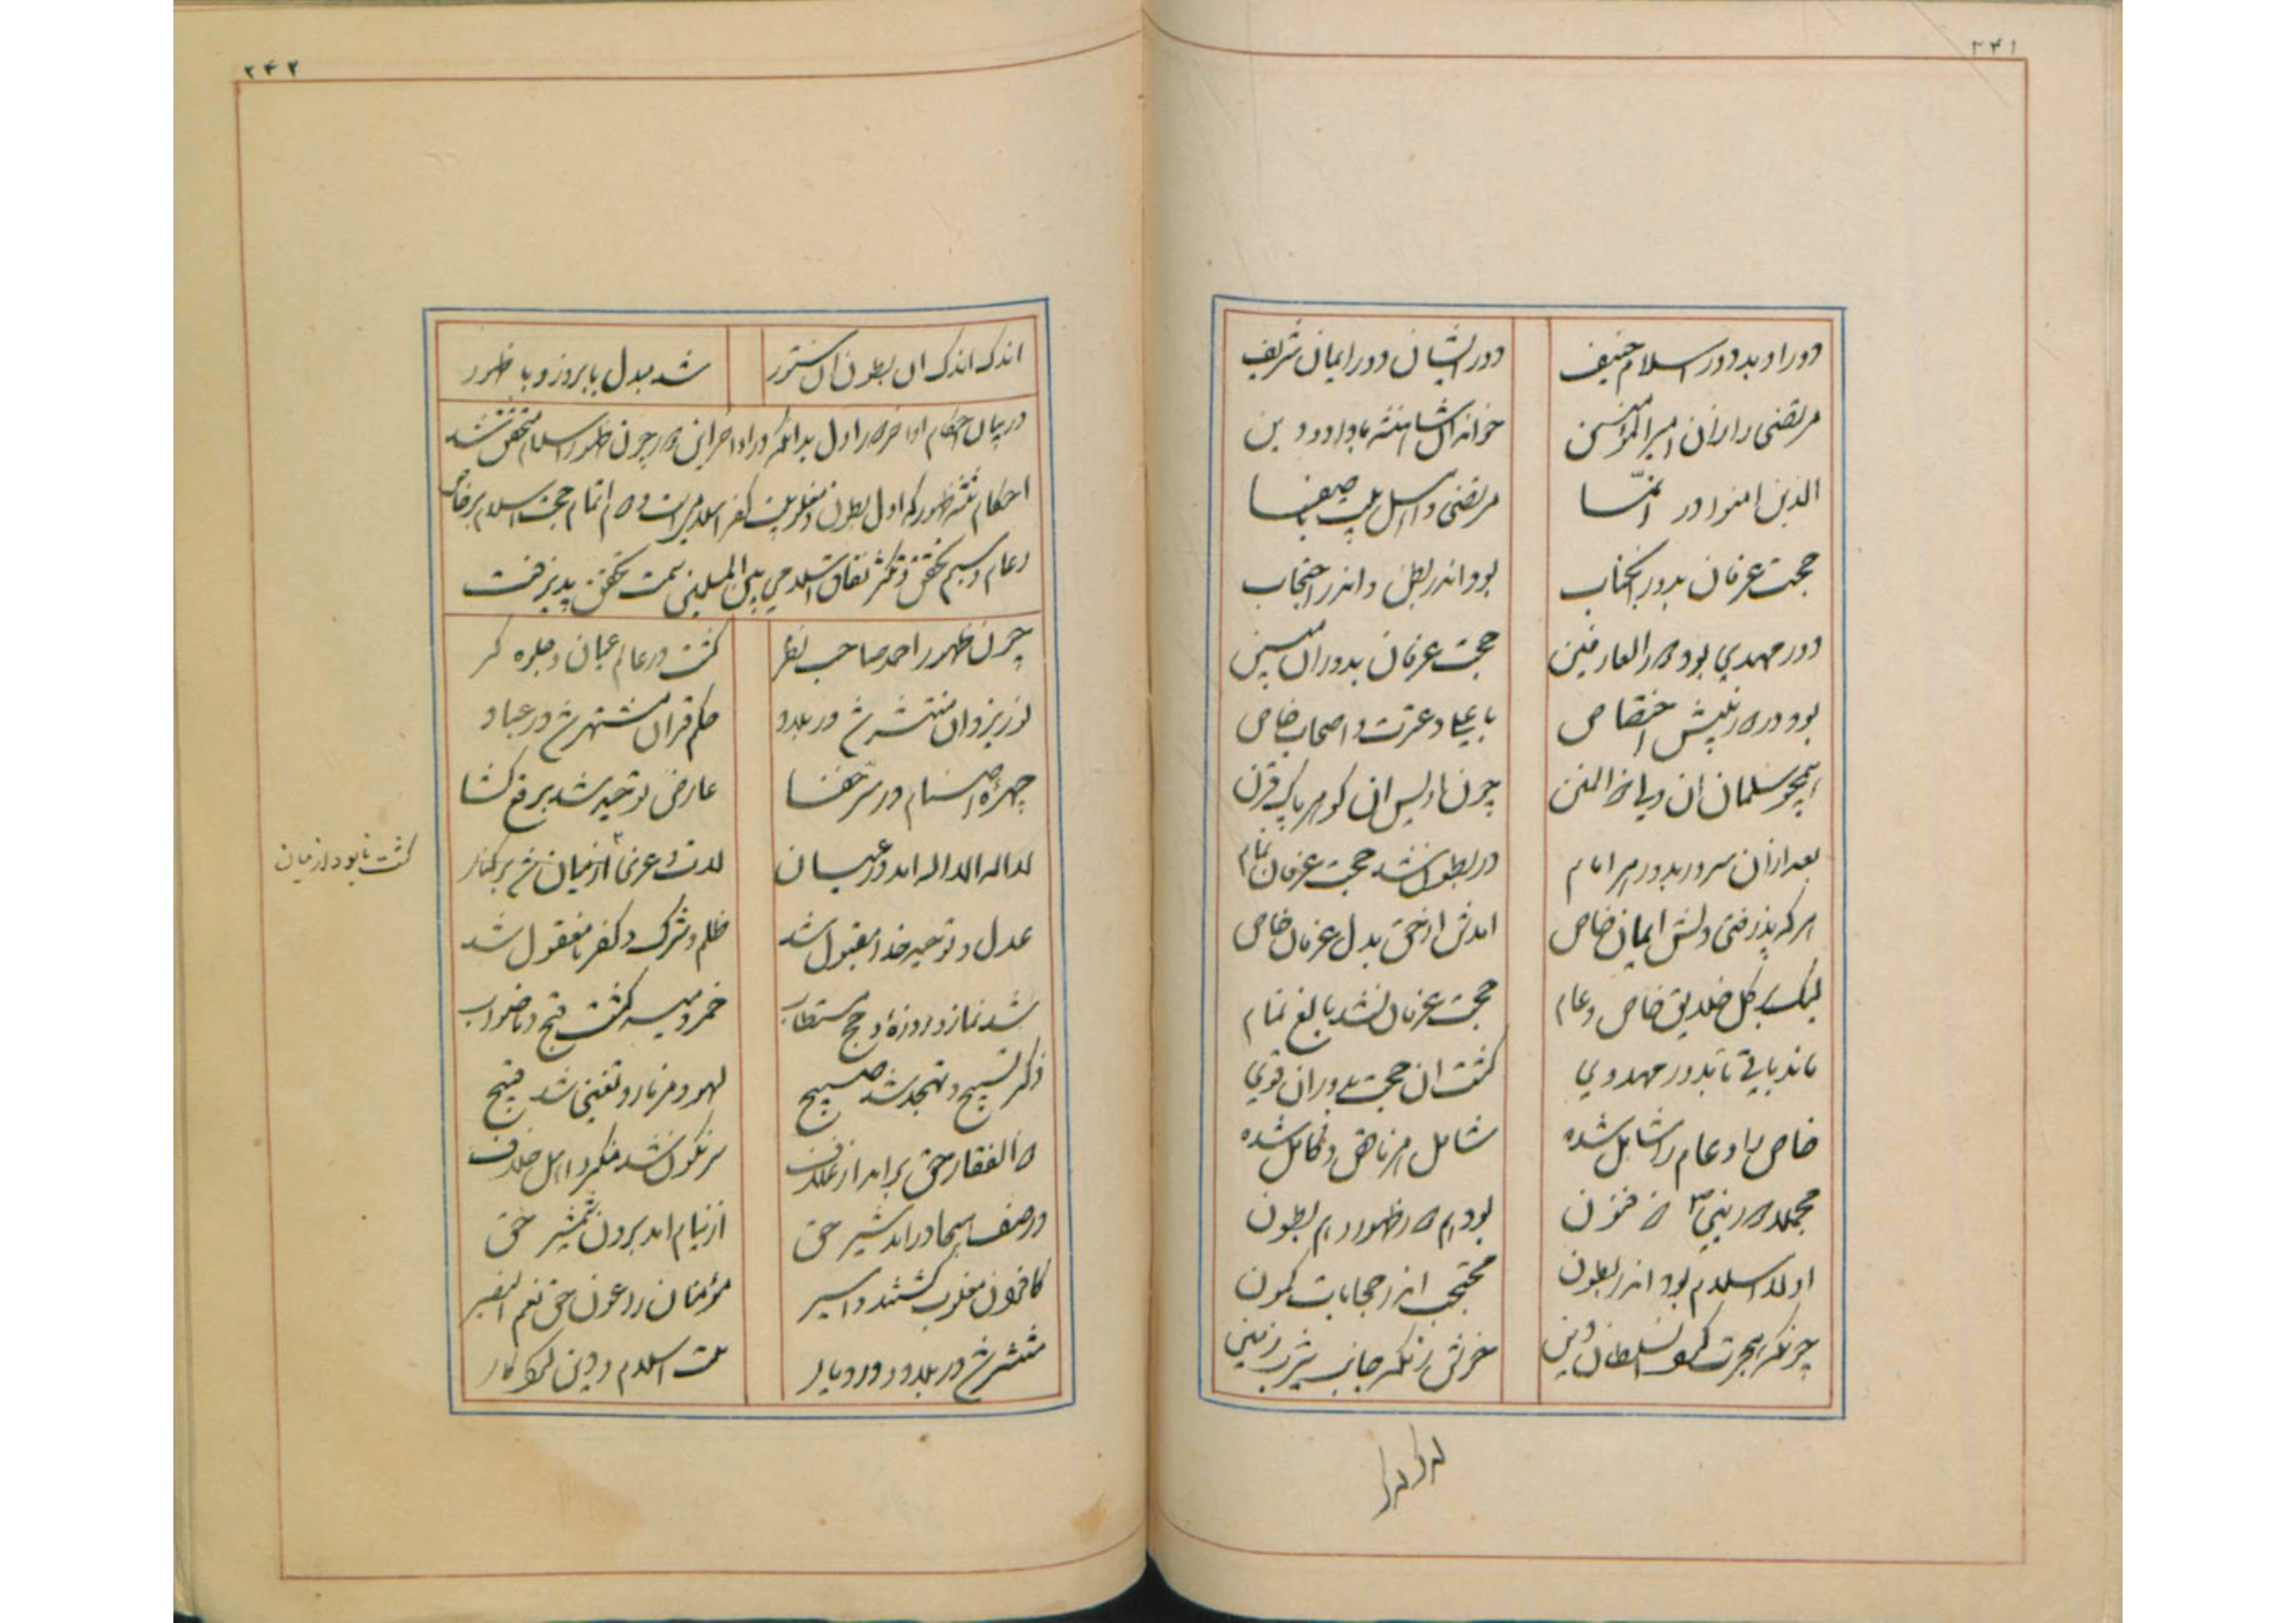 ۲۴۱
دور او بد دور اسلام حنیف دور ایشان دور ایمان شریف
مرتضی را زان امیر المؤمنین خواند آن شاهنشه با داد و دین
الذین امنوا در انّما مرتضی و اهل بیت باصفا
حجت عرفان بدور آنجناب بود اندر بطن و اندر احتجاب
دور مهدی بود دور العارفین حجت عرفان بدور آن مبین
بود در دور نبیش اختصاص با علی و عترت و اصحاب خاص
همچو سلمان آن ذو المنن چون اویس آن گوهر پاک قرن
بعد از آن سرور بدور هر امام در بطون شد حجت عرفان تمام
هر که پذرفتی دلش ایمان خاص آمدش از حق بدل عرفان خاص
لیک بر کل خلایق خاص و عام حجت عرفان نشد بالغ تمام
ماند باقی تا بدور مهدوی گشت آن حجت بدوران قوی
خاص را و عام را شامل شده شامل هر ناقص و کامل شده
مجملا دور نبی ذو فنون بود هم دور ظهور و هم بطون
اولا اسلام بود اندر بطون محتجب اندر حجابات کمون
چونکه هجرت کرد سلطان دین جانب یثرب زمین
اندک اندک
۲۴۲
اندک اندک آن بطون آن ستور شد مبدل با بروز و با ظهور
در بیان احکام اواخر دور اول بدانکه در اواخر این دور چون ظهور اسلام متحقق شد
احکام ثلثه ظهور که اول بطون و مغلوبیت کفر اسلامی است دوم اتمام حجت اسلام بر خاص
و عام و سیم تحقق و تکثر نفاق اسلامی بین المسلمین سمت تحقق پذیرفت
چون ظهور احمد صاحب نظر گشت در عالم عیان و جلوه گر
نور یزدان منتشر شد در بلاد حکم قرآن مشتهر شد در عباد
چهرۀ اصنام در ستر خفا عارض توحید شد برقع گشا
لا اله الا اله آمد در عیان لات و عزی از میان شد بر کنار
گشت نابود از میان
عدل و توحید خدا مقبول شد ظلم و شرک و کفر نامعقول شد
شد نماز و روزه و حج مستطاب خمر و میسر گشت قبح و ناصواب
ذکر تسبیح و تهجد شد صبیح لهو و مزمار و تغنی شد قبیح
ذو الفقار حق برآمد از غلاف سرنگون شد منکر و اهل خلاف
در صف هیجا درآمد شیر حق از نیام آمد برون شمشیر حق
کافرون مغلوب گشتند و اسیر مؤمنان را عون حق نعم النصیر
منتشر شد در بلاد و در دیار ملت اسلام و دین کردگار